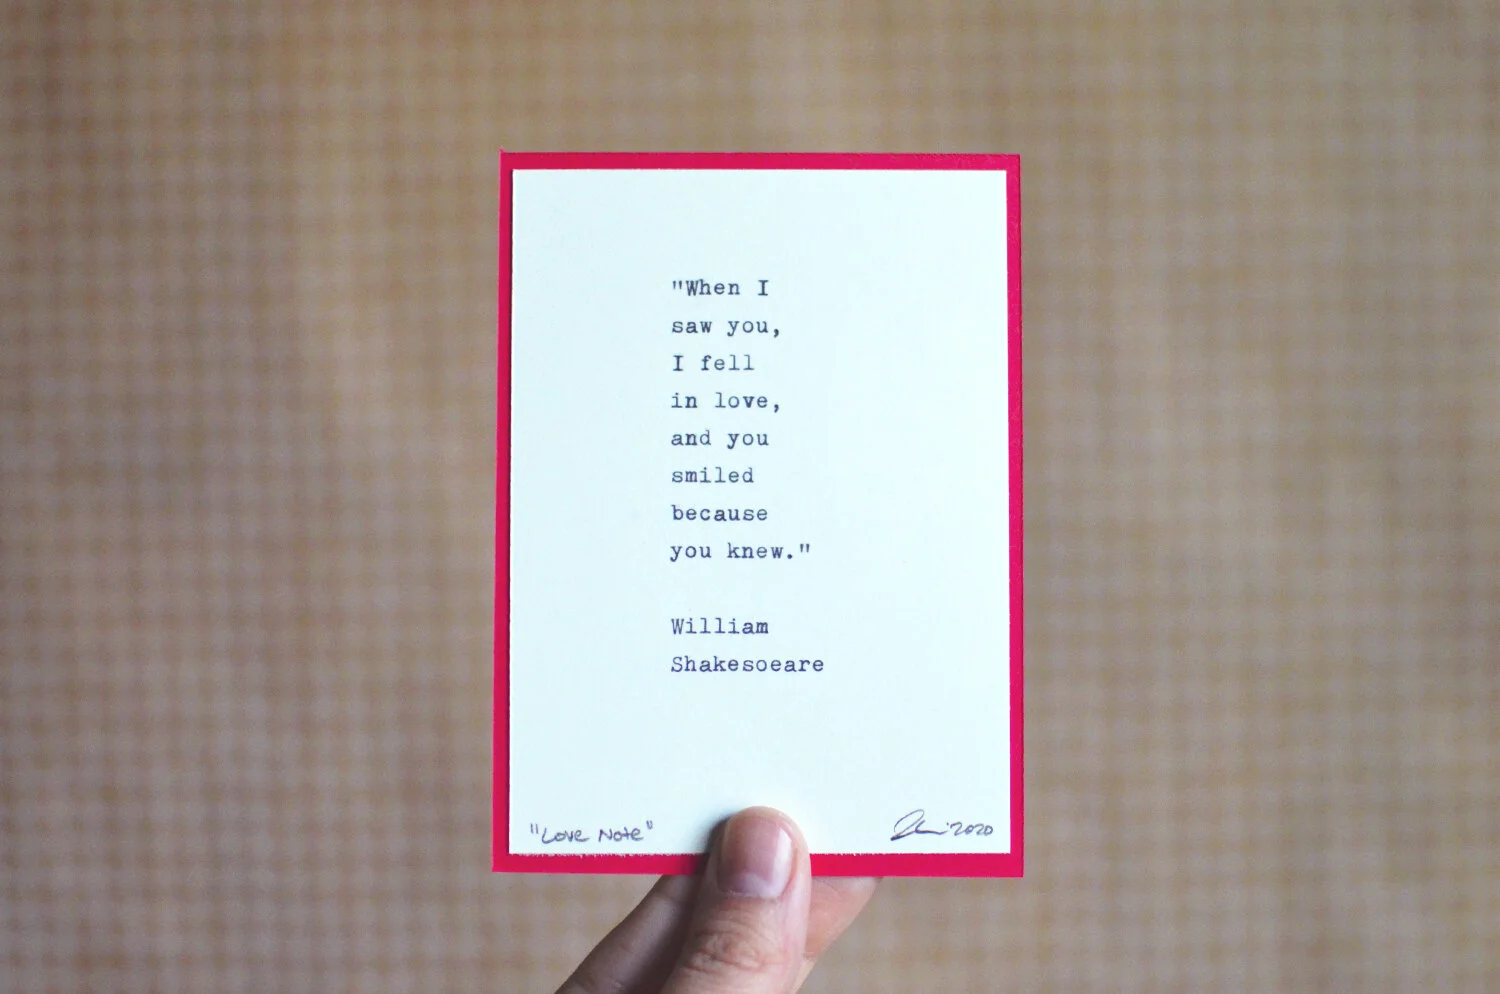 "When I
saw you,
I fell
in love,
and you
smiled
because
you knew."
William
Shakesoeare
"Love Note" '2020